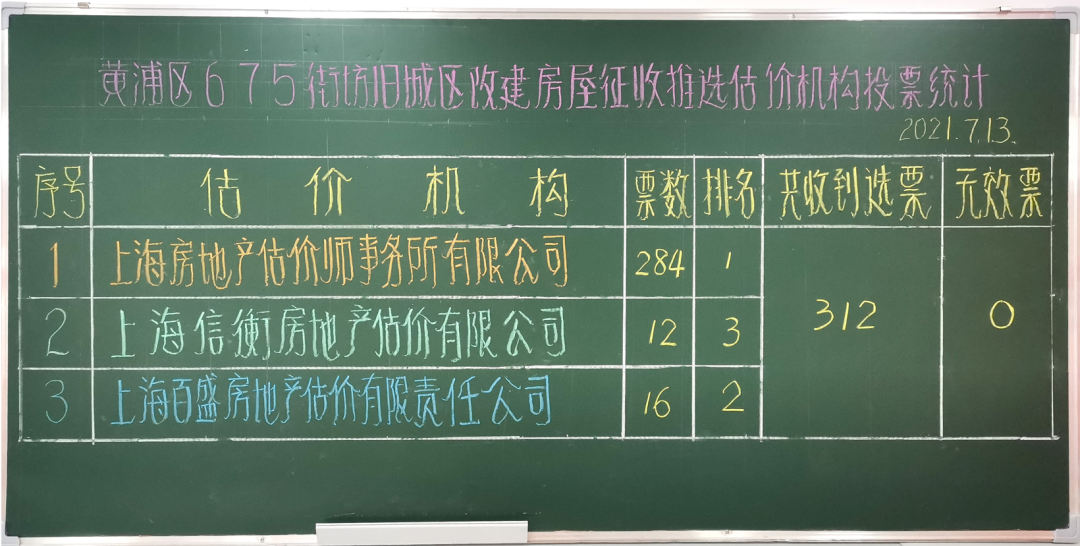 黄浦区675街坊旧城区改建房屋征收推选估价机构投票统计
2021.7.13.
序号 估价机构 票数 排名 共收到选票 无效票
1 上海房地产估价师事务所有限公司 284 1
2 上海信衡房地产估价有限公司 12 3 312 0
3 上海百盛房地产估价有限责任公司 16 2